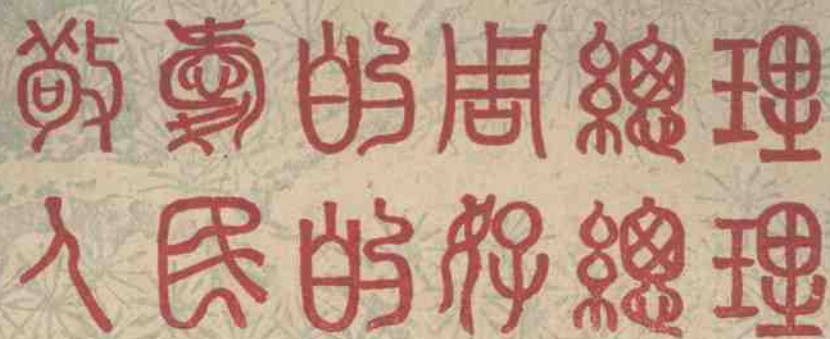 敬愛的周總理
人民的好總理